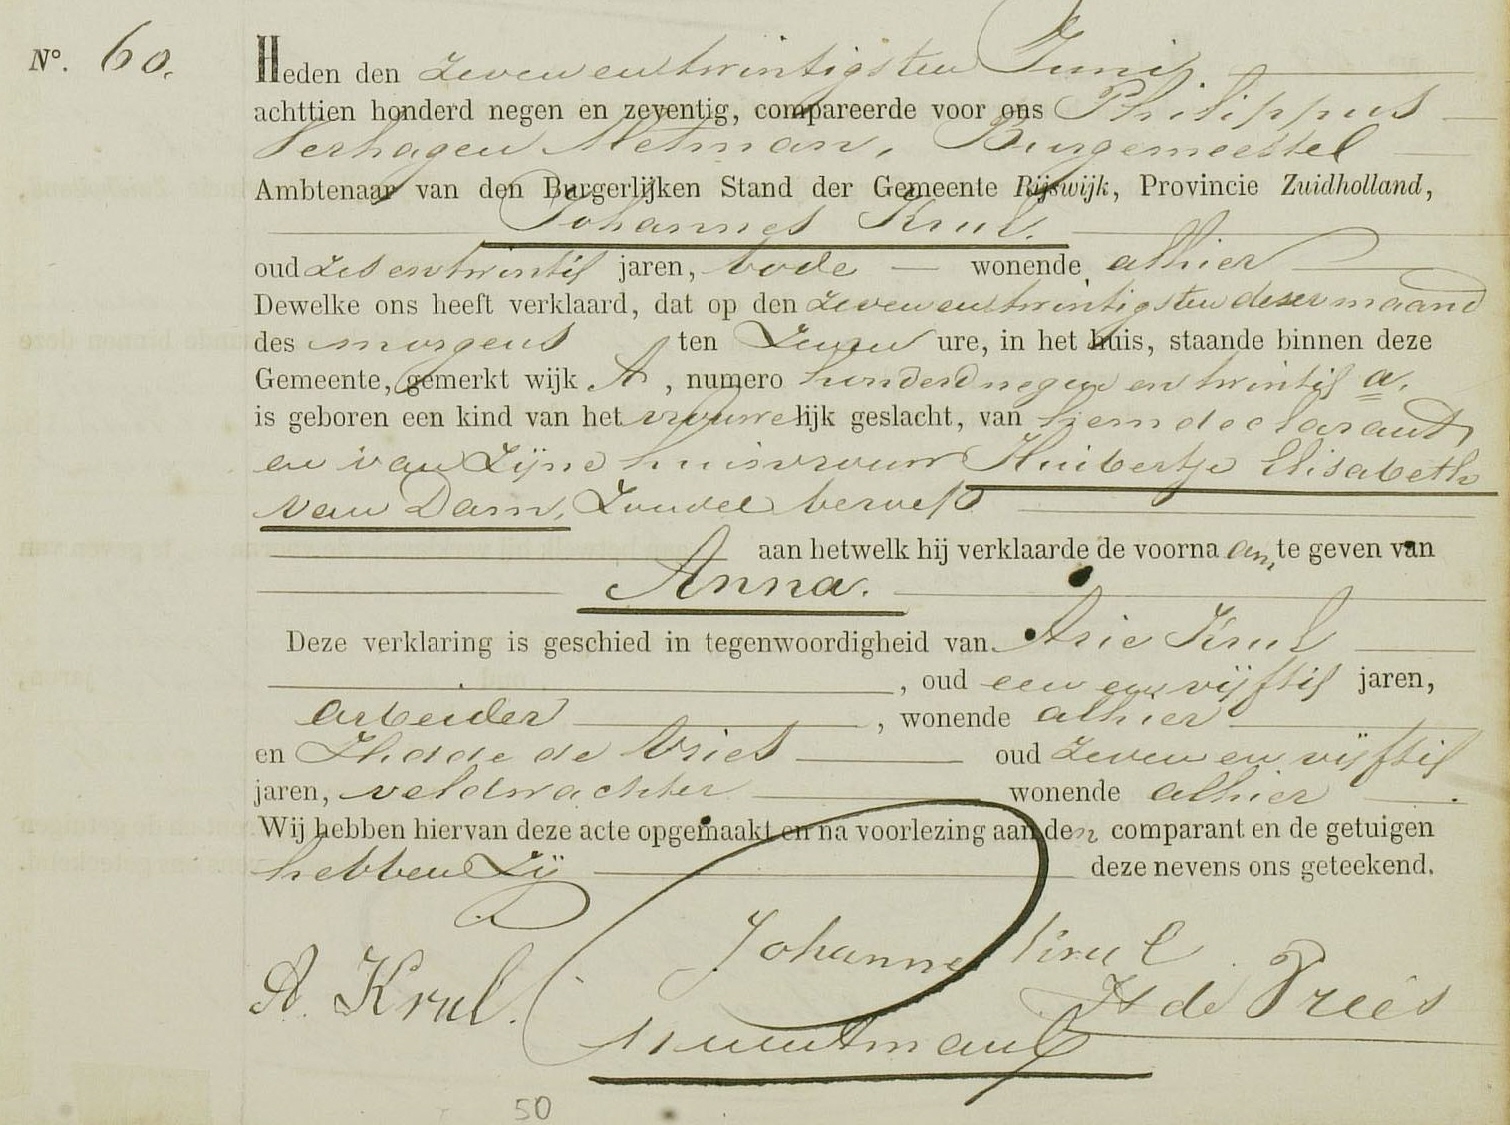 Nº. 60.
Heden den zeven en twintigsten Junij
achttien honderd negen en zeventig, compareerde voor ons Philippus
Verhagen Metman, Burgemeester
Ambtenaar van den Burgerlijken Stand der Gemeente Rijswijk, Provincie Zuidholland,
Johannes Krul.
oud zes en twintig jaren, bode wonende alhier
Dewelke ons heeft verklaard, dat op den zeven en twintigsten dezer maand
des morgens ten zeven ure, in het huis, staande binnen deze
Gemeente, gemerkt wijk A, numero honderd negen en twintig a.
is geboren een kind van het vrouwelijk geslacht, van hem declarant
en van zijne huisvrouw Huibertje Elisabeth
van Dam, zonder beroep
aan hetwelk hij verklaarde de voornaam, te geven van
Anna.
Deze verklaring is geschied in tegenwoordigheid van Arie Krul
, oud een en vijftig jaren,
arbeider, wonende alhier
en de Vries oud zeven en vijftig
jaren, veldwachter wonende alhier
Wij hebben hiervan deze acte opgemaakt en na voorlezing aan den comparant en de getuigen
hebben zij deze nevens ons geteekend.
Johannes Krul
A. Krul.
de Vries
50